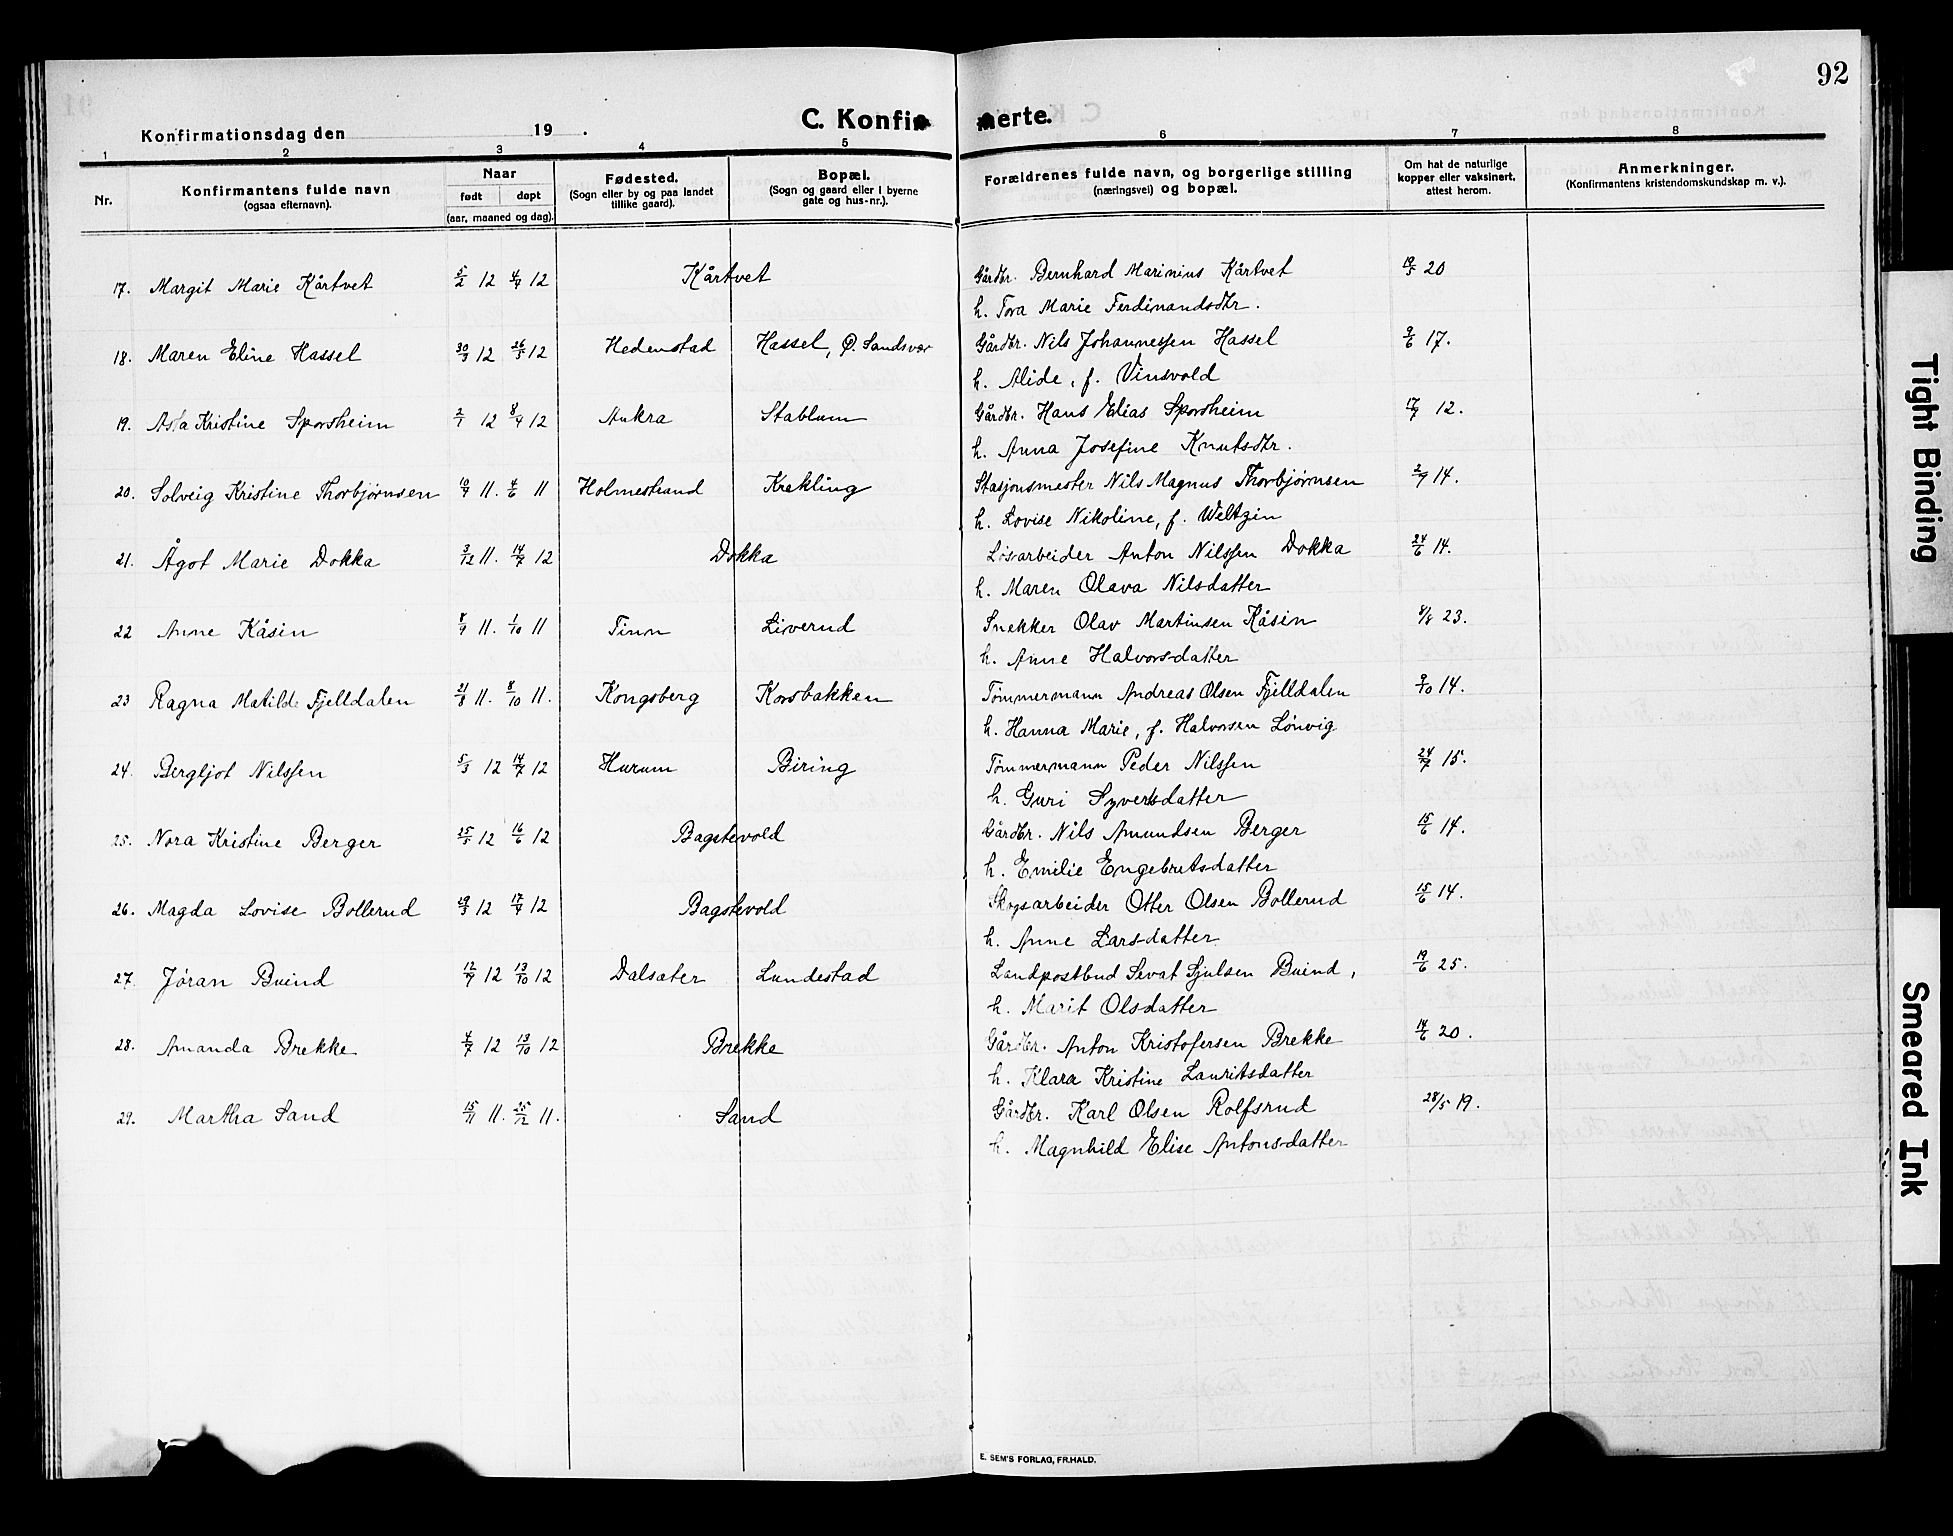 92
Konfirmationsdag den 19 .
C. Konfirmerte.
1 2 3 4 5 6 7 8
Nr.
Konfirmantens fulde navn
(ogsaa efternavn).
Naar
født døpt
(aar, maaned og dag).
Fødested.
(Sogn eller by og paa landet
tillike gaard).
Bopæl.
(Sogn og gaard eller i byerne
gate og hus-nr.).
Forældrenes fulde navn, og borgerlige stilling
(næringsvei) og bopæl.
Om hat de naturlige
kopper eller vaksinert,
attest herom.
Anmerkninger.
(Konfirmantens kristendomskundskap m. v.).
17. Margit Marie Kårtvet 5/2 12 4/4 12 Kårtvet Gårdbr. Bernhard Marinius Kårtvet 19/5 20
h. Tora Marie Ferdinandsdtr.
18. Maren Eline Hassel 30/3 12 26/5 12 Hedenstad Hassel, Ø. Sandsvær Gårdbr. Nils Johannessen Hassel 9/6 17.
h. Alide, f. Vinsvold
19. Asta Kristine Sporsheim 2/1 12 8/4 12 Aukra Stablum Gårdbr. Hans Elias Sporsheim 17/9 12.
h. Anna Josefine Knutsdtr.
20. Solveig Kristine Thorbjørnsen 10/4 11. 4/6 11 Holmestrand Krekling Stasjonsmester Nils Magnus Thorbjørnsen 2/9 14.
h. Lovise Nikoline, f. Weltzin
21. Ågot Marie Dokka 3/12 11. 14/7 12 Dokka Løsarbeider Anton Nilssen Dokka 24/6 14.
h. Maren Olava Nilsdatter
22 Anne Kåsin 8/9 11. 1/10 11 Tinn Liverud Snekker Olav Martinsen Kåsin 23.
h. Anne Halvorsdatter
23 Ragna Matilde Fjelldalen 21/8 11. 8/10 11. Kongsberg Korsbakken Tømmermann Andreas Olsen Fjelldalen 9/10 14.
h. Hanna Marie, f. Halvorsen Lønvig
24. Bergljot Nilssen 5/3 12 14/7 12 Hurum Biring Tømmermann Peder Nilssen 24/7 15.
h. Guri Syvertsdatter
25. Nora Kristine Berger 25/5 12 16/6 12 Bagstevold Gårdbr. Nils Amundsen Berger 15/6 14.
h. Emilie Engebretsdatter
26. Magda Lovise Bollerud 19/3 12 17/4 12 Bagstevold Skogsarbeider Otter Olsen Bollerud 15/6 14.
h. Anne Larsdatter
27. Jøran Buind 12/9 12 13/10 12 Dalsæter Lundestad Landpostbud Sevat Sjulsen Buind, 19/6 25.
h. Marit Olsdatter
28. Amanda Brekke 4/7 12 13/10 12 Brekke Gårdbr. Anton Kristofersen Brekke 14/6 20.
h. Klara Kristine Lauritsdatter
29. Martha Sand 15/11 11. 25/12 11. Sand Gårdbr. Karl Olsen Rolfsrud 28/5 19.
h. Magnhild Elise Antonsdatter
E. SEM'S FORLAG, FR.HALD.
Tight Binding
Smeared Ink